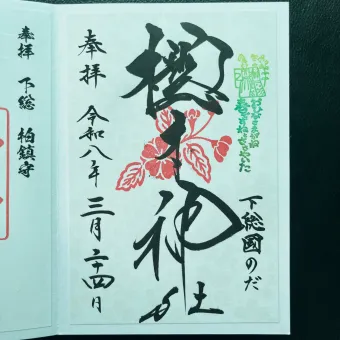 奉拝
令和八年三月二十四日
櫻木神社
下総國のだ
奉拝
下総 柏鎮守